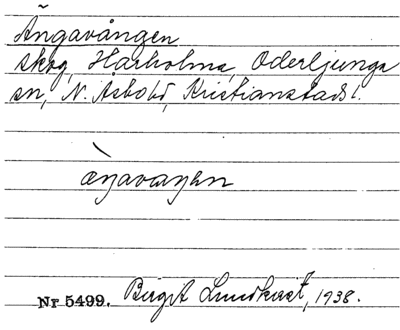 Ängavången
skog, Harholma, Oderljunga
sn, N. Åsbohd, Kristianstads l.
æŋavaŋən
Nr 5499. Birgit Lundkvist, 1938.